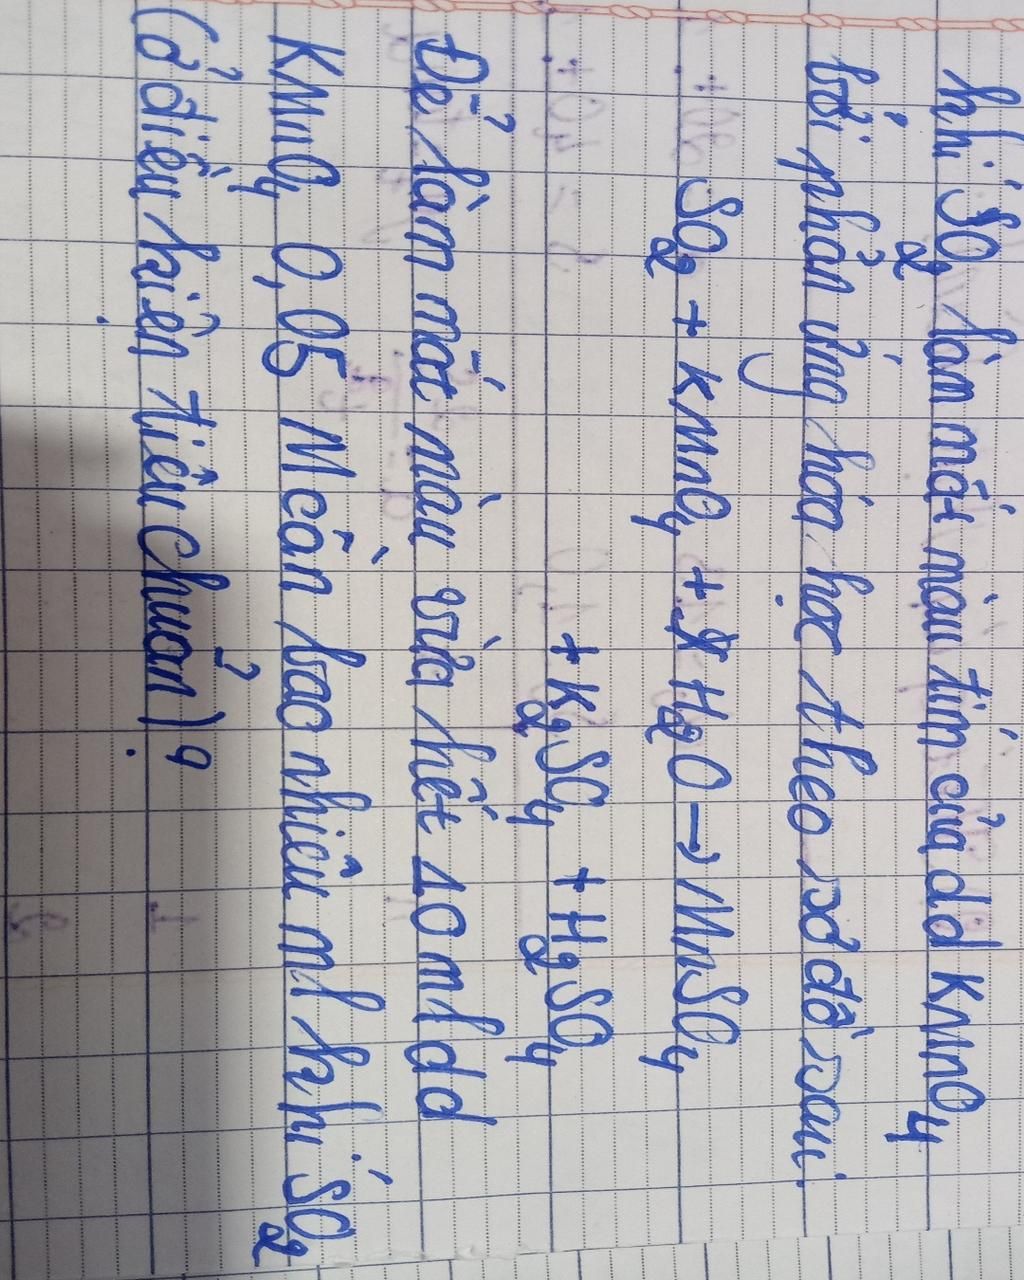 khí SO2 làm mất màu tím của dd KMnO4
bởi phản ứng hóa học theo sơ đồ sau:
SO2 + KMnO4 + H2O → MnSO4
+ K2SO4 + H2SO4
Để làm mất màu vừa hết 10 ml dd
KMnO4 0,05 M cần bao nhiêu ml khí SO2
(ở điều kiện tiêu chuẩn)?